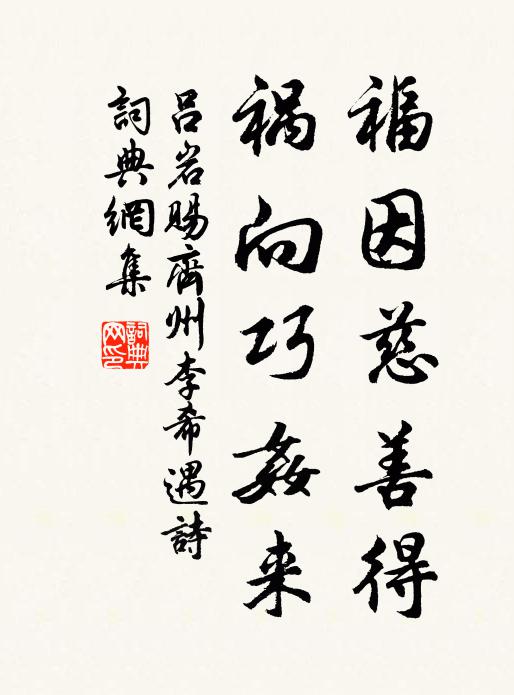 福因慈善得
禍向巧姦来
吕岩賜齊州李希遇詩
詞典網集
詞典网印